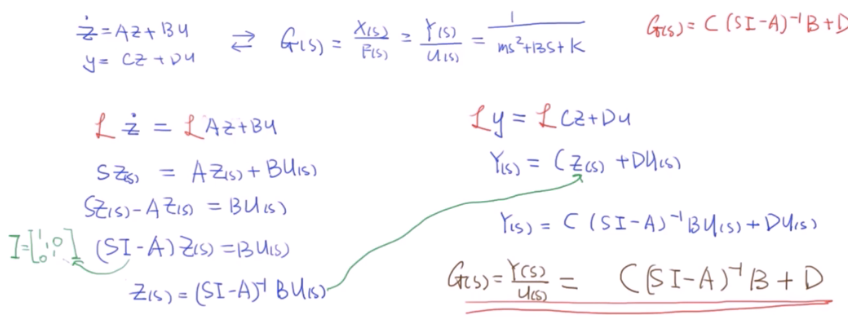 ż = Az + Bu
y = Cz + Du
⇄ G(s) = X(s)/F(s) = Y(s)/U(s) = 1/(ms²+Bs+K)
G(s) = C(SI-A)⁻¹B+D
L ż = L Az+Bu
SZ(s) = AZ(s) + BU(s)
SZ(s) - AZ(s) = BU(s)
(SI-A) Z(s) = BU(s)
Z(s) = (SI-A)⁻¹ BU(s)
I = [1 0 1 0 1]
L y = L Cz + Du
Y(s) = CZ(s) + DU(s)
Y(s) = C (SI-A)⁻¹ BU(s) + DU(s)
G(s) = Y(s)/U(s) = C(SI-A)⁻¹B + D